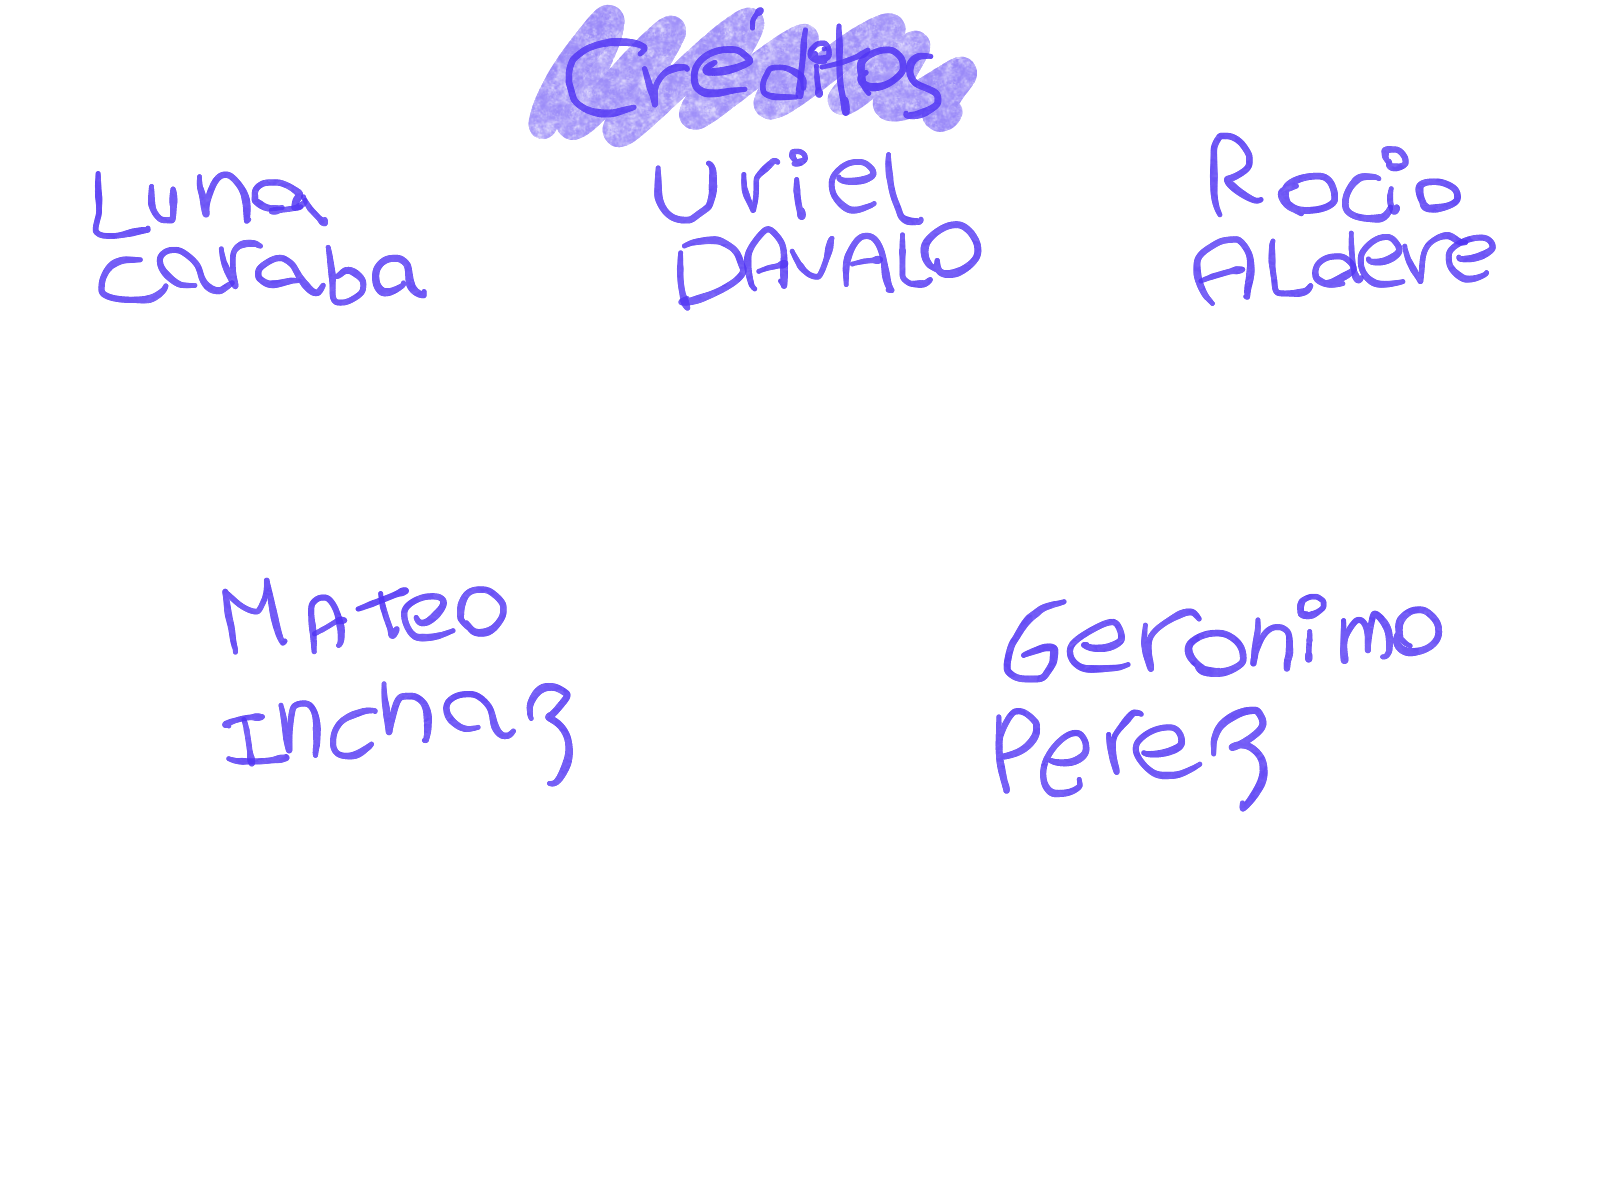 Créditos
Luna
Caraba
Uriel
DAVALO
Rocio
ALdere
MATeo
Inchaz
Geronimo
Perez